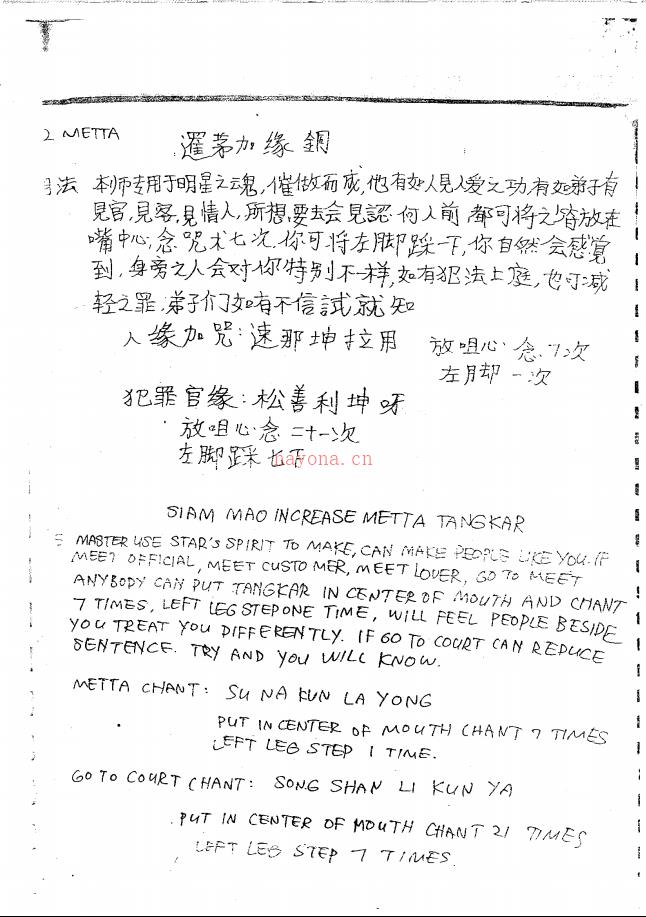 2 METTA
暹茅加缘銅
法 本师专用于明星之魂,催做而成,他有如人見人爱之功,有如弟子有
見官,見客,見情人,所想要去会見認何人前 都可将之皆放在
嘴中心,念咒术七次,你可将左脚踩一下,你自然会感覚
到,身旁之人会对你特别不一样,如有犯法上庭,也可减
轻之罪,弟子们如有不信試就知
人缘加咒:速那坤拉用
放咀心念7次
左月却一次
犯罪官缘:松善利坤呀
放咀心念二十一次
左脚踩七下
nayona.cn
SIAM MAO INCREASE METTA TANGKAR
MASTER USE STAR'S SPIRIT TO MAKE, CAN MAKE PEOPLE LIKE YOU. IF
MEET OFFICIAL, MEET CUSTOMER, MEET LOVER, GO TO MEET
ANYBODY CAN PUT TANGKAR IN CENTER OF MOUTH AND CHANT
7 TIMES, LEFT LEG STEP ONE TIME, WILL FEEL PEOPLE BESIDE
YOU TREAT YOU DIFFERENTLY. IF GO TO COURT CAN REDUCE
SENTENCE. TRY AND YOU WILL KNOW.
METTA CHANT: SU NA KUN LA YONG
PUT IN CENTER OF MOUTH CHANT 7 TIMES
LEFT LEG STEP 1 TIME.
GO TO COURT CHANT: SONG SHAN LI KUN YA
PUT IN CENTER OF MOUTH CHANT 21 TIMES
LEFT LEG STEP 7 TIMES.